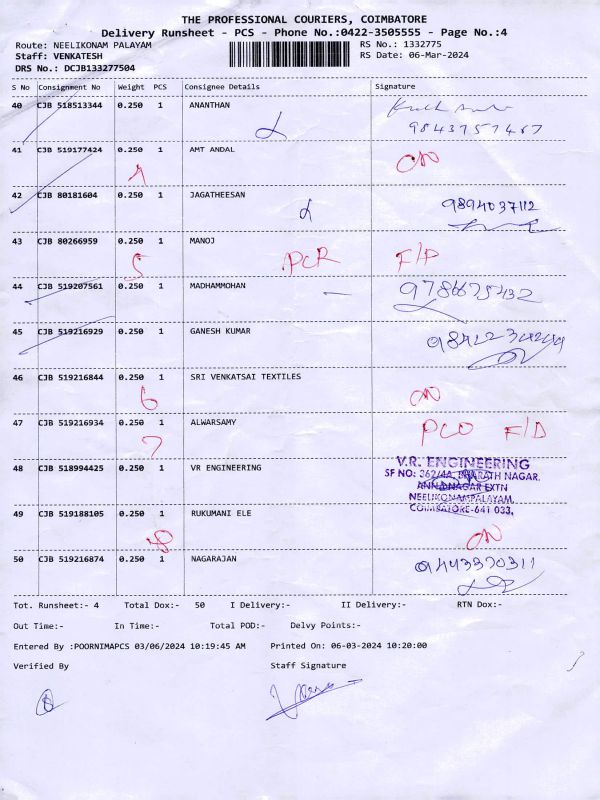 THE PROFESSIONAL COURIERS, COIMBATORE
Delivery Runsheet - PCS - Phone No.:0422-3505555 - Page No.:4
Route: NEELIKONAM PALAYAM
RS No.: 1332775
Staff: VENKATESH
RS Date: 06-Mar-2024
DRS No.: DCJB133277504
S No Consignment No Weight PCS Consignee Details Signature
40 CJB 518513344 0.250 1 ANANTHAN
9843757467
41 CJB 519177424 0.250 1 AMT ANDAL
42 CJB 80181604 0.250 1 JAGATHEESAN 9894037112
43 CJB 80266959 0.250 1 MANOJ
5 PCR F/P
44 CJB 519207561 0.250 1 MADHAMMOHAN 9786675432
45 CJB 519216929 0.250 1 GANESH KUMAR
46 CJB 519216844 0.250 1 SRI VENKATSAI TEXTILES
6
47 CJB 519216934 0.250 1 ALWARSAMY
7 PCO F/D
48 CJB 518994425 0.250 1 VR ENGINEERING
V.R. ENGINEERING
SF NO: 362/4A, BHARATH NAGAR,
ANNANAGAR EXTN
NEELIKONAMPALAYAM,
COIMBATORE-641 033.
49 CJB 519188105 0.250 1 RUKUMANI ELE
8
50 CJB 519216874 0.250 1 NAGARAJAN 9443370311
Tot. Runsheet:- 4 Total Dox:- 50 I Delivery:- II Delivery:- RTN Dox:-
Out Time:- In Time:- Total POD:- Delvy Points:-
Entered By :POORNIMAPCS 03/06/2024 10:19:45 AM Printed On: 06-03-2024 10:20:00
Verified By Staff Signature